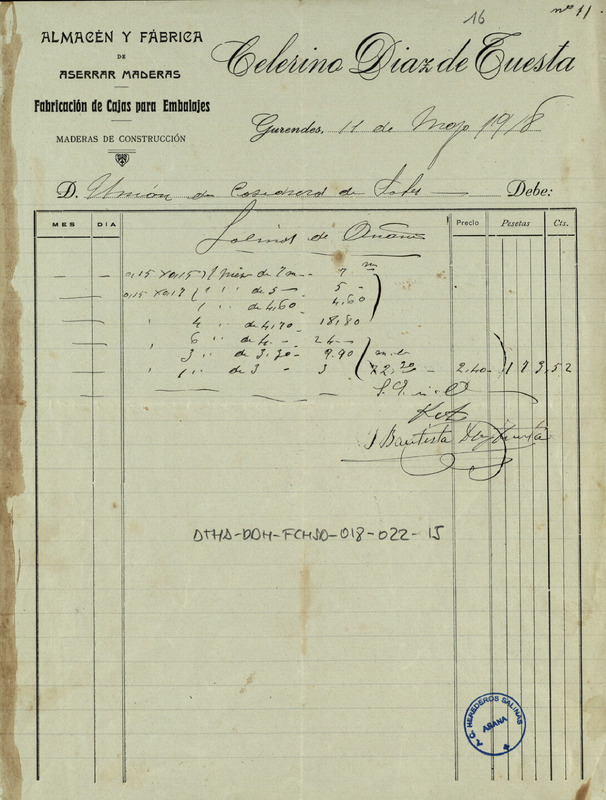 16
nº 11
ALMACÉN Y FÁBRICA
DE
ASERRAR MADERAS
Fabricación de Cajas para Embalajes
MADERAS DE CONSTRUCCIÓN
Celerino Diaz de Tuesta
Gurendes, 11 de Mayo 1918
D. Unión de de Debe:
MES DÍA Precio Pesetas Cts.
Salinas de Añana
0,15 X 0,15 1 de 7 m 7 m
0,15 X 0,17 1 " " de 5 - 5 -
1 " de 4,60 4,60
4 " de 4,70 - 18,80
6 " de 4 - 24 -
3 " de 3,30 - 9.90
1 " de 3 - 3 72,30 - 2,40 - 173,52
J Bautista
DTHA-DDH-FCHSD-018-022-15
A.C. HEREDEROS SALINAS
AÑANA